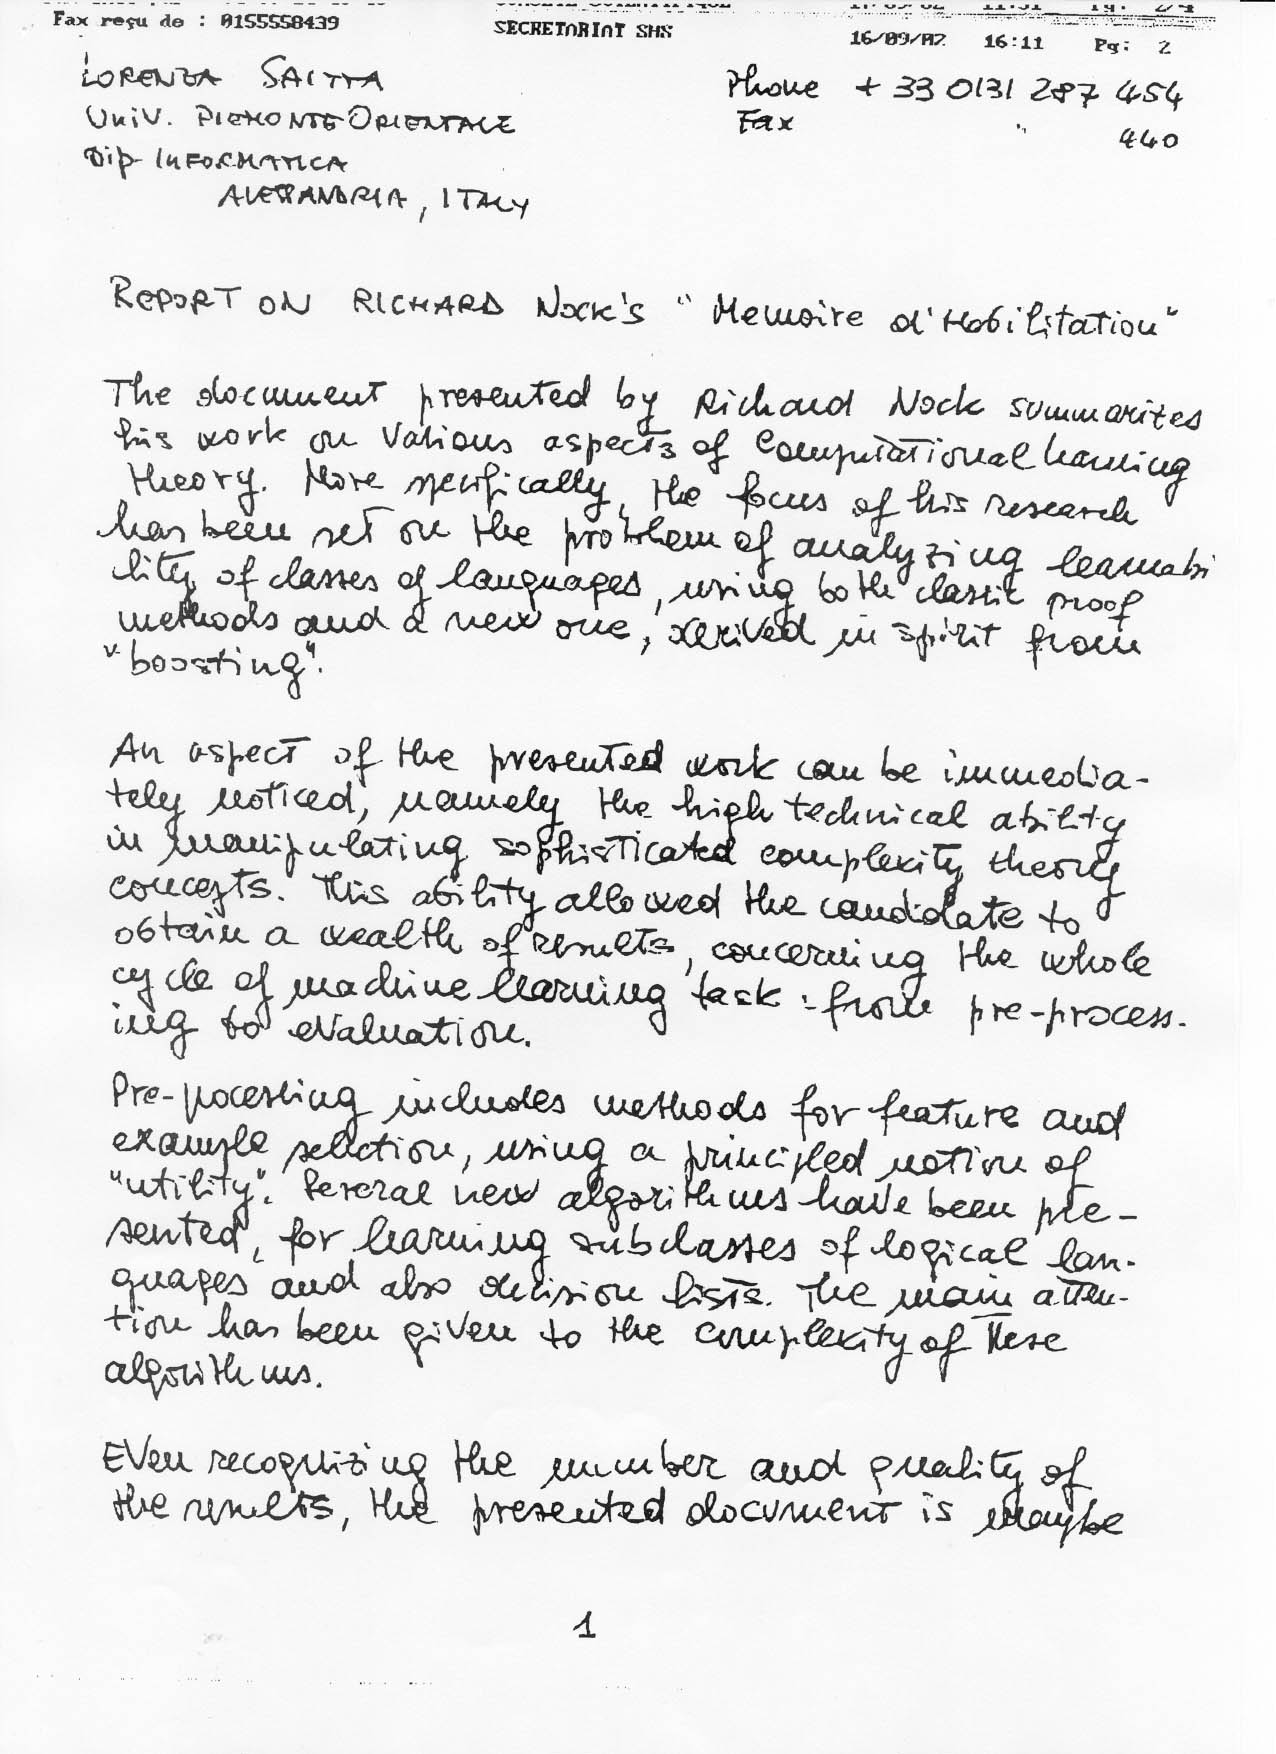 Fax reçu de : 0155558439
SECRETARIAT SHS
16/09/02 16:11 Pg: 2
LORENZA SAITTA
UNIV. PIEMONTE ORIENTALE
Dip INFORMATICA
ALESSANDRIA, ITALY
Phone + 33 0131 287 454
Fax " 440
REPORT ON RICHARD NOCK'S "Memoire d'Habilitation"
The document presented by Richard Nock summarizes
his work on various aspects of Computational learning
theory. More specifically, the focus of his research
has been set on the problem of analyzing learnabi
lity of classes of languages, using both classic proof
methods and a new one, derived in spirit from
"boosting".
An aspect of the presented work can be immedia-
tely noticed, namely the high technical ability
in manipulating sophisticated complexity theory
concepts. This ability allowed the candidate to
obtain a wealth of results, concerning the whole
cycle of machine learning task : from pre-process-
ing to evaluation.
Pre-pocessing includes methods for feature and
example selection, using a principled notion of
"utility". Several new algorithms have been pre-
sented, for learning subclasses of logical lan-
guages and also decision lists. The main atten-
tion has been given to the complexity of these
algorithms.
Even recognizing the number and quality of
the results, the presented document is maybe
1